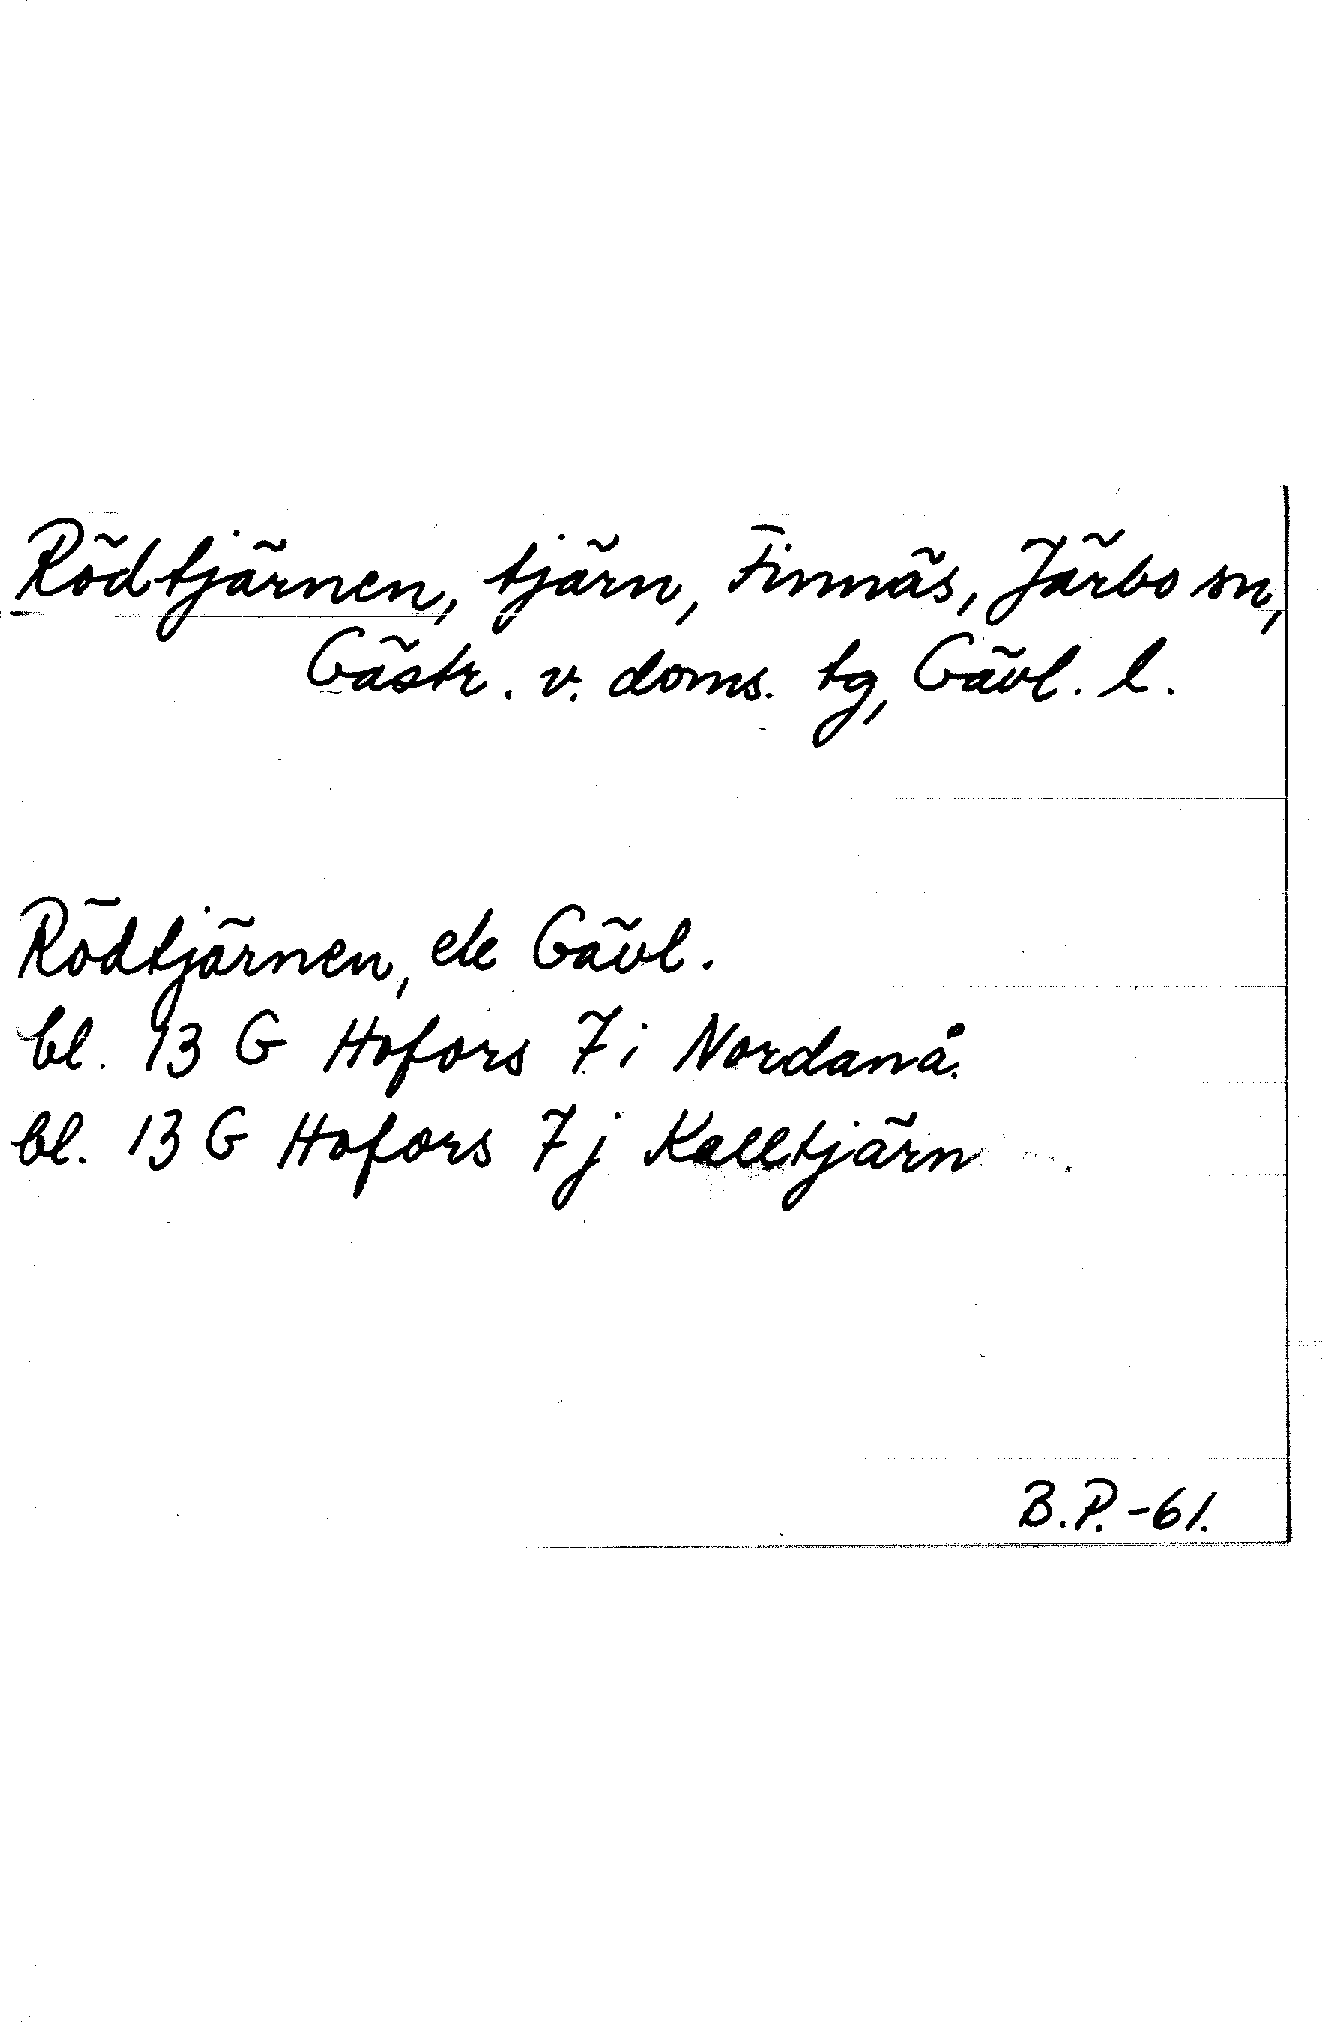 Rödtjärnen, tjärn, Finnäs, Järbo sn,
Gästr. v. doms. tg, Gävl. l.
Rödtjärnen, ek Gävl.
bl. 13 G Hofors 7 i Nordanå.
bl. 13 G Hofors 7 j Kalltjärn
B.P.-61.